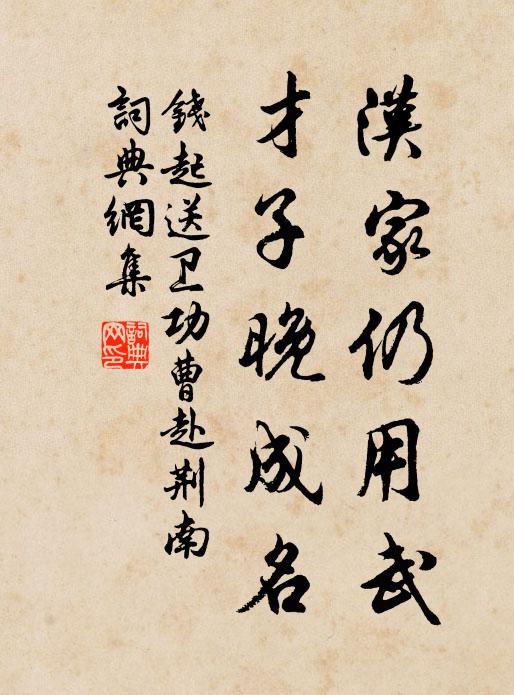 漢家仍用武
才子晚成名
錢起送卫功曹赴荆南
詞典網集
詞典网印